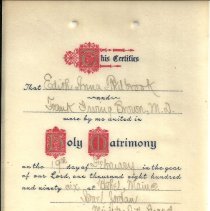 This Certifies
That Edith Anna Philbrook
and
Frank Irving Brown, M.D.
were by me united in
Holy Matrimony
on the 19th day of February in the year
of our Lord, one thousand eight hundred
and ninety six at Bethel, Maine